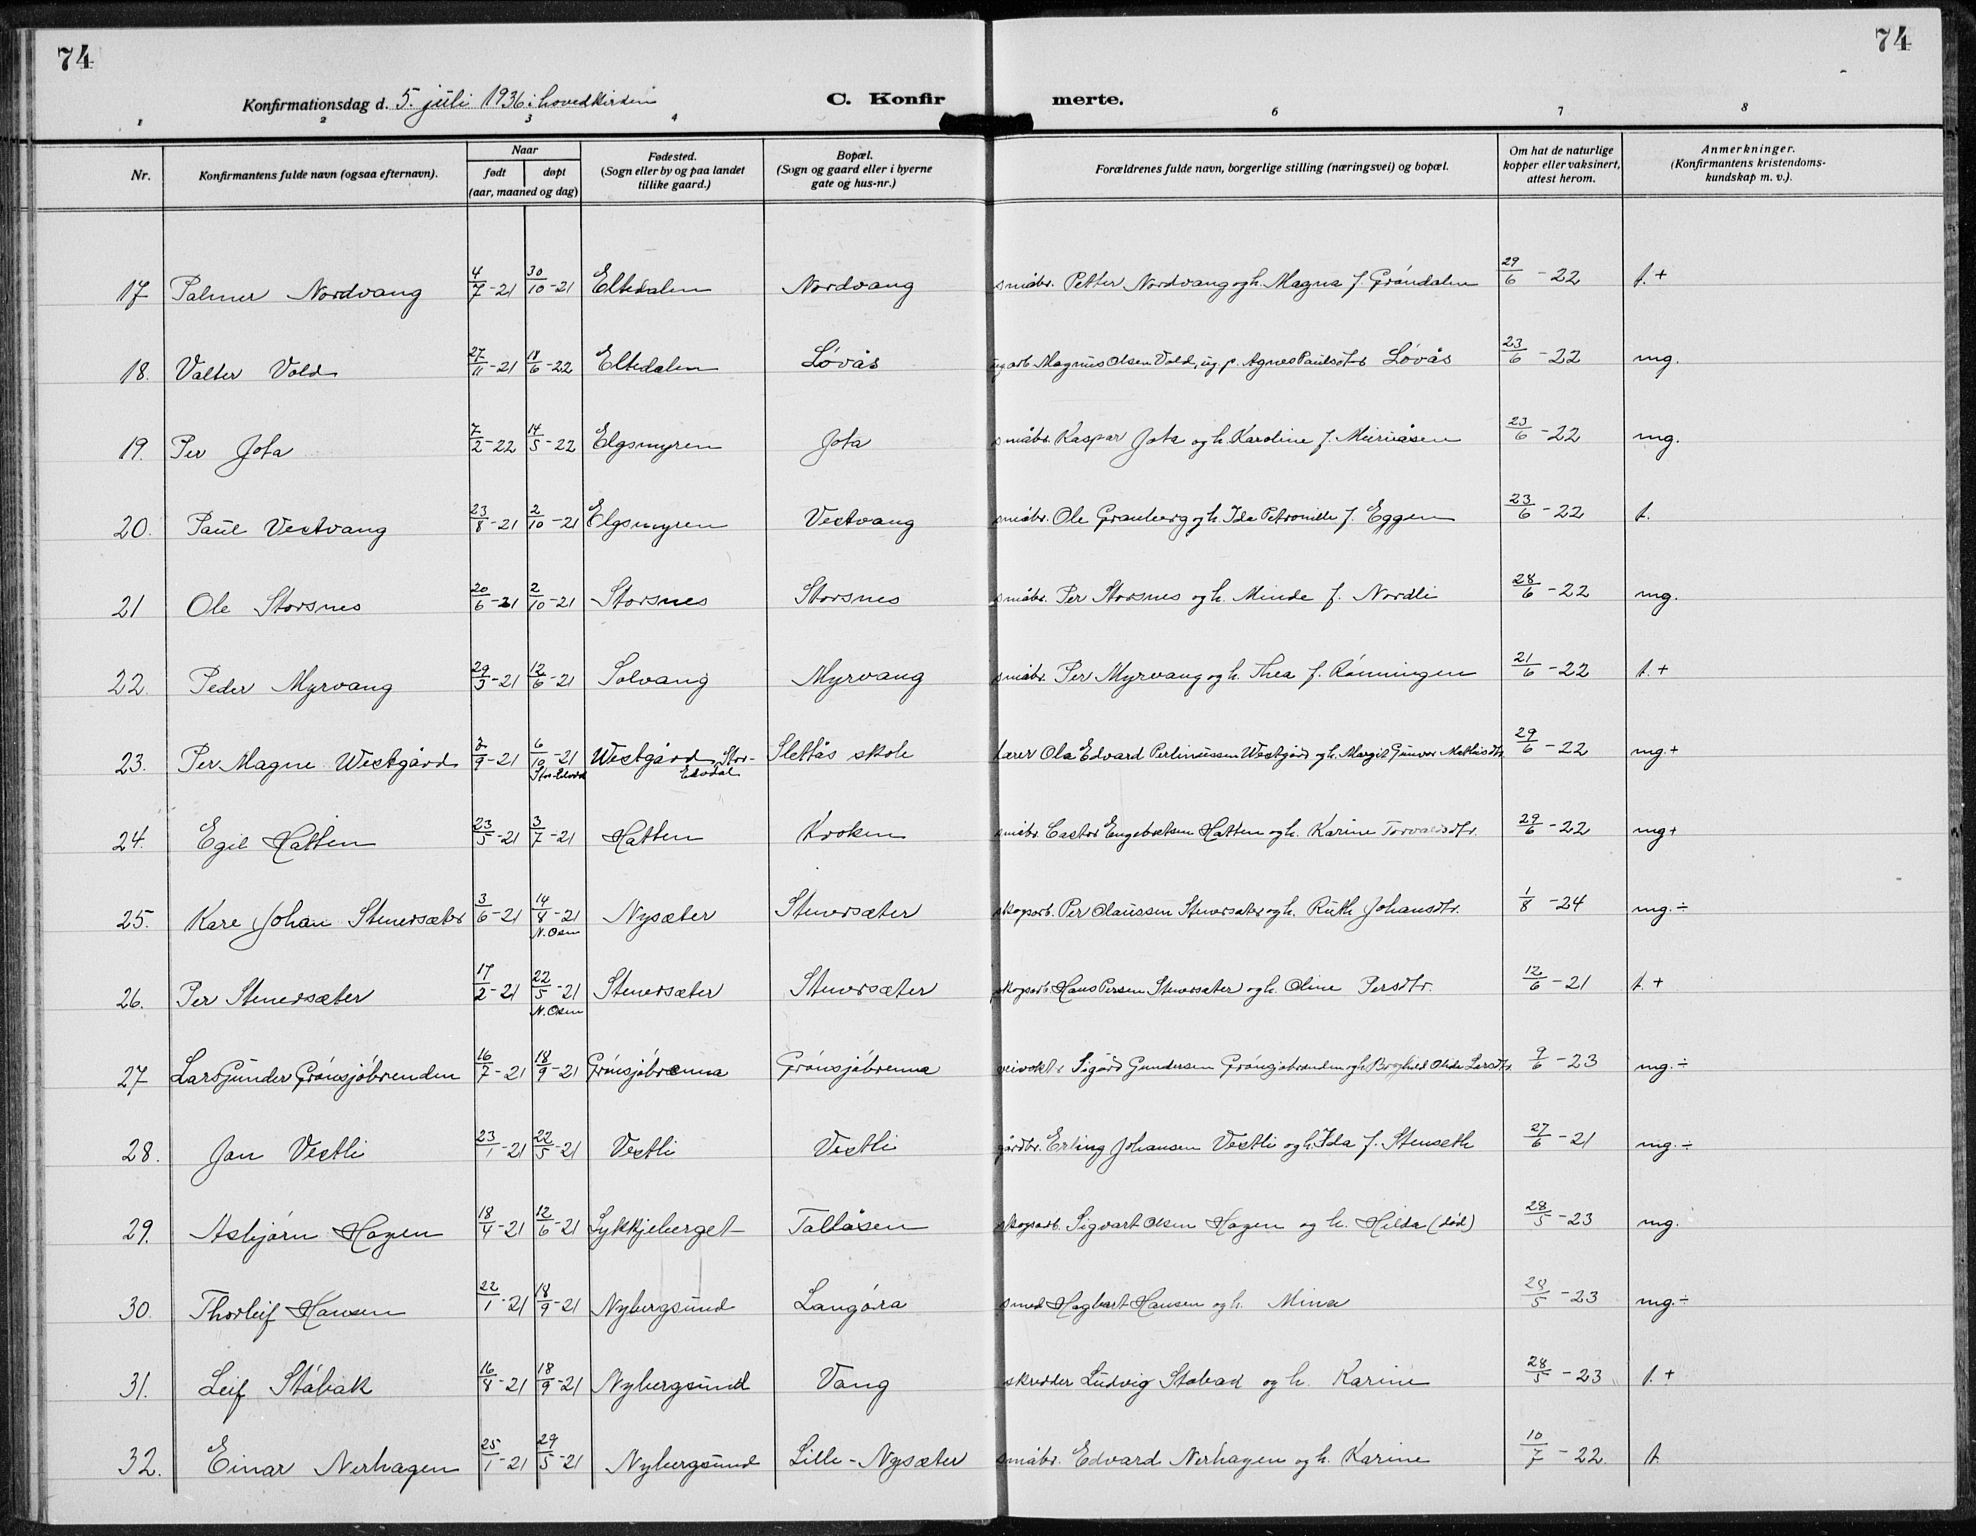 74
74
Konfirmationsdag d. 5. juli 1936 i hovedkirken
C. Konfirmerte.
1 2 3 4 6 7 8
Nr.
Konfirmantens fulde navn (ogsaa efternavn).
Naar
født døpt
(aar, maaned og dag)
Fødested.
(Sogn eller by og paa landet
tillike gaard.)
Bopæl.
(Sogn og gaard eller i byerne
gate og hus-nr.)
Forældrenes fulde navn, borgerlige stilling (næringsvei) og bopæl.
Om hat de naturlige
kopper eller vaksinert,
attest herom.
Anmerkninger.
(Konfirmantens kristendoms-
kundskap m. v.).
17 Palmer Nordvang 4/7-21 30/10-21 Eltedalen Nordvang småbr. Petter Nordvang og h. Magna f. Gróndalen 29/6-22 t.+
18. Valter Vold 27/11-21 18/6-22 Eltedalen Lóvås ug. arb. Magnus Olsen Vold, ug. p. Agnes Paulsdtr Lóvås 23/6-22 mg.
19. Per Jota 7/2-22 14/5-22 Elgsmyren Jota småbr. Kaspar Jota og h. Karoline f. 23/6-22 mg.
20. Paul Vestvang 23/8-21 2/10-21 Elgsmyren Vestvang småbr. Ole Granberg og h. Ida Petronille f. Eggen 23/6-22 t.
21 Ole Storsnes 20/6-21 2/10-21 Storsnes Storsnes småbr. Per Storsnes og h. Minde f. Nordli 28/6-22 mg.
22. Peder Myrvang 29/3-21 12/6-21 Solvang Myrvang småbr. Per Myrvang og h. Thea f. Rónningen 21/6-22 t.+
23. Per Magne Westgård 7/9-21 6/10-21 Westgård, Stor- Slettås skole lærer Ola Edvard Perlinussen Westgård og h. Margit Gunvor Mathisdtr. 29/6-22 mg.+
Stor-Elvdal Elvdal
24. Egil Hatten 23/5-21 3/7-21 Hatten Kroken småbr. Castor Engebretsen Hatten og h. Karine Torvaldsdtr. 29/6-22 mg+
25. Kåre Johan Stenersæter 3/6-21 14/8-21 Nysæter Stenersæter skogsarb. Per Olaussen Stenersæter og h. Ruth Johansdtr. 1/8-24 mg.÷
N. Osen
26. Per Stenersæter 17/2-21 22/5-21 Stenersæter Stenersæter skogsarb. Hans Persen Stenersæter og h. Oline Persdtr. 12/6-21 t.+
N. Osen
27 Lars Gunder Grónsjóbrenden 16/7-21 18/9-21 Grónsjóbrenna Grónsjóbrenna veivokt. Sigurd Gundersen Grónsjóbrenden og h. Borghild Olida Larsdtr. 9/6-23 mg.÷
28. Jan Vestli 23/1-21 22/5-21 Vestli Vestli gårdbr. Erling Johansen Vestli og h. Ida f. Stenseth 27/6-21 mg.÷
29. Asbjórn Hagen 18/4-21 12/6-21 Lykkjeberget Tallåsen skogsarb. Sigvart Olsen Hagen og h. Hilda (død) 28/5-23 mg.
30. Thorleif Hansen 22/1-21 18/9-21 Nybergsund Langóra smed Hagbart Hansen og h. Mina 28/5-23 mg.÷
31. Leif Støbak 16/8-21 18/9-21 Nybergsund Vang skredder Ludvig Støbak og h. Karine 28/5-23 t.+
32. Einar Nerhagen 25/1-21 29/5-21 Nybergsund Lille-Nysæter småbr. Edvard Nerhagen og h. Karine 10/7-22 t.